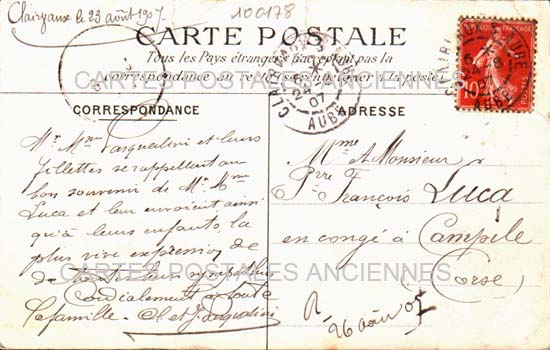 Clairvaux le 23 août 1907.
100178
CARTE POSTALE
Tous les Pays étrangers n'acceptant pas la
correspondance au recto se renseigner à la poste
CLAIRVAUX AUBE
24 8
07
CORRESPONDANCE
ADRESSE
Mr. Mme Pasqualini et leurs
fillettes se rappellent au
bon souvenir de Mr. Mme
Luca et leur envoient ainsi
qu'à leurs enfants, la
plus vive expression de
de toute leur sympathie
Cordialement à toute
la famille. et J. Pasqualini
Mme et Monsieur
Pre François Luca
en congé à Campile
(Corse)
R
26 août 07
10
CARTES POSTALES ANCIENNES
CARTES POSTALES ANCIENNES
CARTES POSTALES ANCIENNES